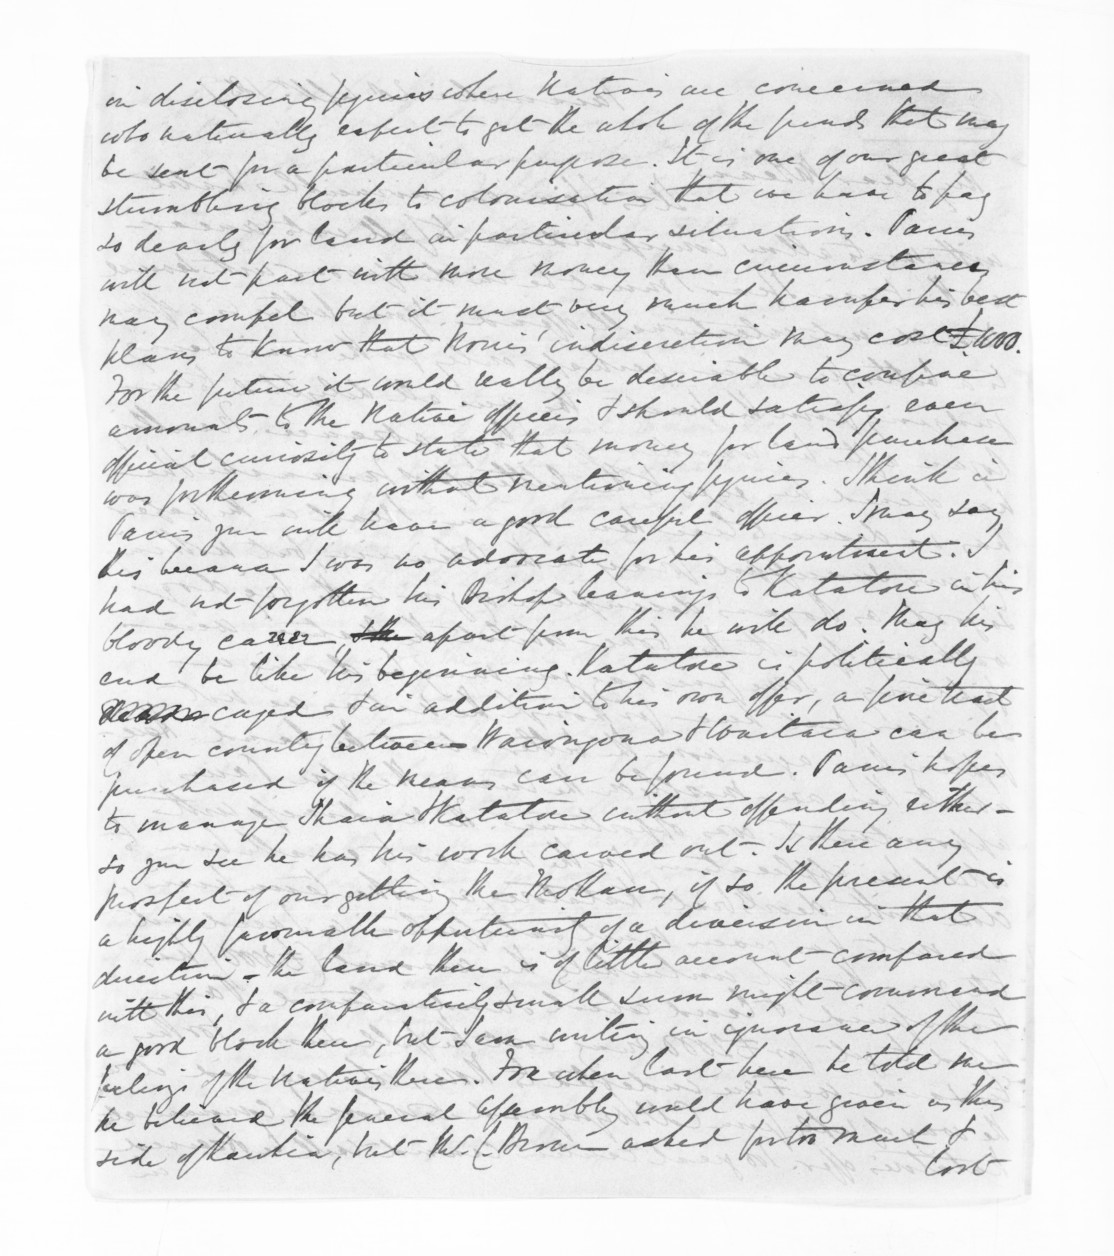 in disclosing figures where Natives are concerned
who naturally expect to get the whole of the funds that may
be sent for a particular purpose. It is one of our great
stumbling blocks to colonisation that we have to pay
so dearly for land in particular situations. Parris
will not part with more money than circumstances
may compel but it must very much hamper his best
plans to know that Norris' indiscretion may cost
For the future it would really be desirable to confine
amounts to the Native officers & should satisfy even
official curiosity to state that money for land purchase
was forthcoming without mentioning figures. I think in
Parris you will have a good careful officer. I may say
this because I was no advocate for his appointment. I
had not forgotten his Bishop leanings to Katatore in his
bloody career, apart from this he will do. May his
end be like his beginning. Katatore is politically
caged & in addition to his own offer, a fine tract
of open country between Waiongona & Waitara can be
purchased if the means can be found. Parris hopes
to manage Ihaia & Katatore without offending either -
so you see he has his work carved out. Is there any
prospect of our getting the Mokau, if so the present is
a highly favourable opportunity of a diversion in that
direction - the land there is of little account compared
with this, & a comparatively small sum might command
a good block there, but I am writing in ignorance of the
feelings of the Natives there. Fox when last here he told me
he believed the General Assembly would have given us this
side of Kawhia, but C. Brown asked for too much &
lost